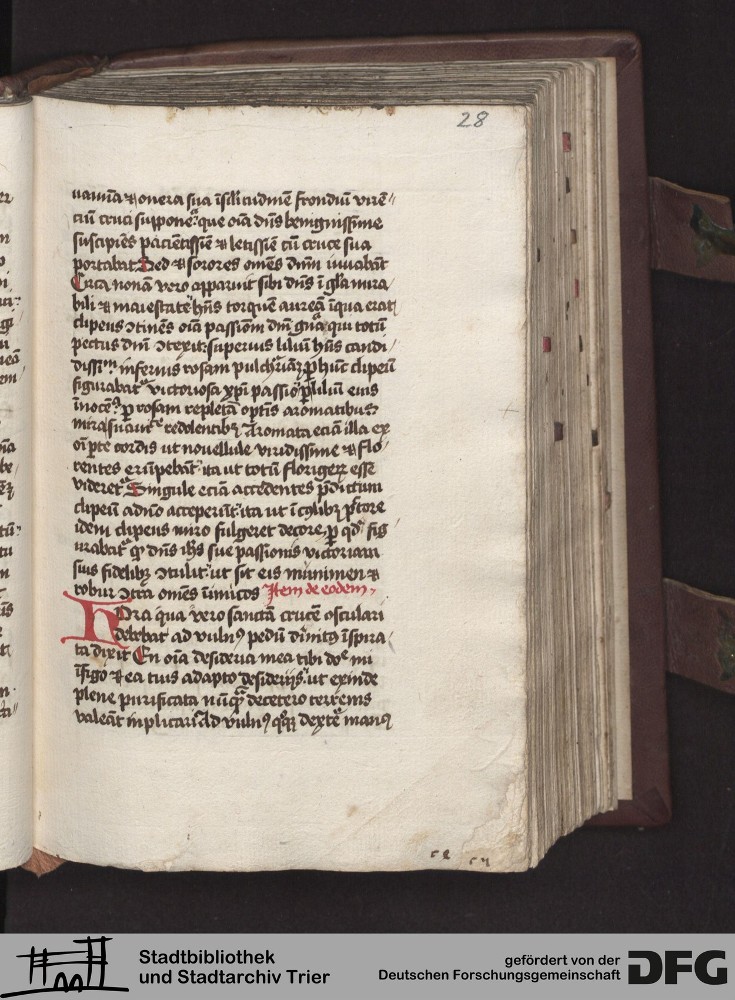 28
uamia & onera sua ĩ silitudinẽ frondiũ virẽ
ciũ cruci suppone: que oĩa dñs benignissime
suscipiẽs paciẽtissiẽ & letissiẽ cũ cruce sua
portabat Sed & sorores omẽs dñm iuuabãt
Circa nonã vero apparuit sibi dñs ĩ glĩa mira
bili & maiestate hñs torquẽ aureã ĩ qua erat
clipeus ꝯtinẽs oĩa passiom dñi qui totũ
pectus dñi ꝯtexit: superius liliũ hñs candi
dissim̃ inferius rosam pulchria p hũc clipeũ
figurabat victoriosa xp̃i passio p liliũ eius
ĩnocẽ p rosam repletã optĩs aromatibus
mira suauit redolentibꝫ Aromata eciã illa ex
oĩ pte cordis ut nouellule viridissime & flo
rentes erũpebãt ita ut totũ florigerꝫ esse
videret Singule eciã accedentes p̃dictum
clipeũ a dño acceperũt: ita ut ĩ cuilibꝫ pectore
idem clipeus miro fulgeret decore, p qd fig
urabat qꝫ dñs ihs sue passionis victoriam
suis fidelibꝫ ꝯtulit: ut sit eis munimen &
robur ꝯtra omẽs ĩimicos Item de eodem
Hora qua vero sanctã crucẽ osculari
debebat ad vulnꝰ pedũ diuinitꝰ ĩspira
ta dixit En oĩa desideria mea tibi dñe mi
ĩfigo & ea tuis adapto desideriis: ut exinde
plene purificata nũqꝫ decetero terrenis
valeãt inplicari Ad vulnꝰ dextẽ manꝰ
Stadtbibliothek
und Stadtarchiv Trier
gefördert von der
Deutschen Forschungsgemeinschaft
DFG